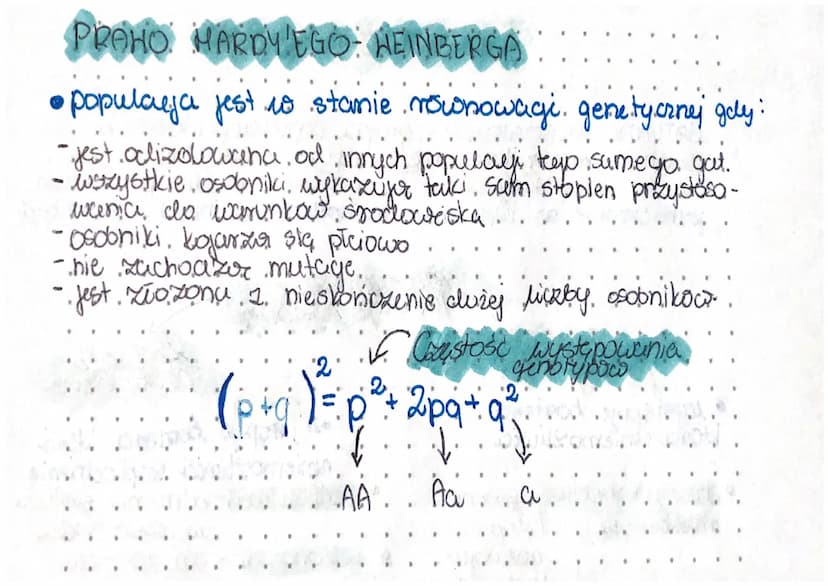 PRAWO HARDY'EGO-WEINBERGA
• populacja jest w stanie równowagi genetycznej gdy:
- jest odizolowana od innych populacji tego samego gat.
- wszystkie osobniki wykazują taki sam stopień przystoso-
wania do warunków środowiska
- osobniki kojarzą się płciowo
- nie zachodzą mutacje
- jest złożona z nieskończenie dużej liczby osobników
Częstość występowania
genotypów
(p+q)² = p² + 2pq + q²
AA Aa a